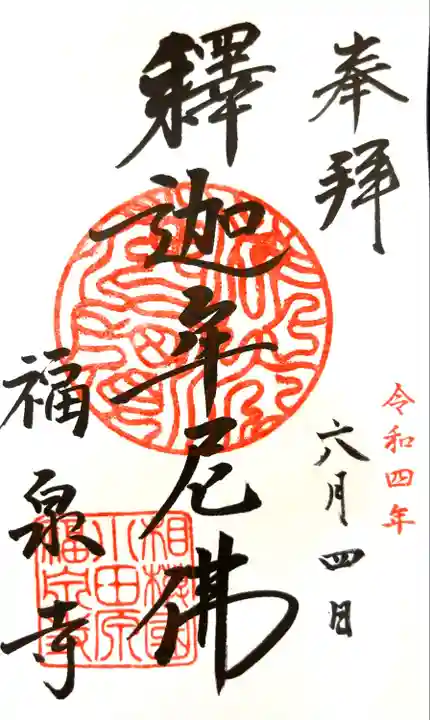 奉拝
令和四年
六月四日
釋迦牟尼佛
福泉寺
相模國
小田原
福泉寺